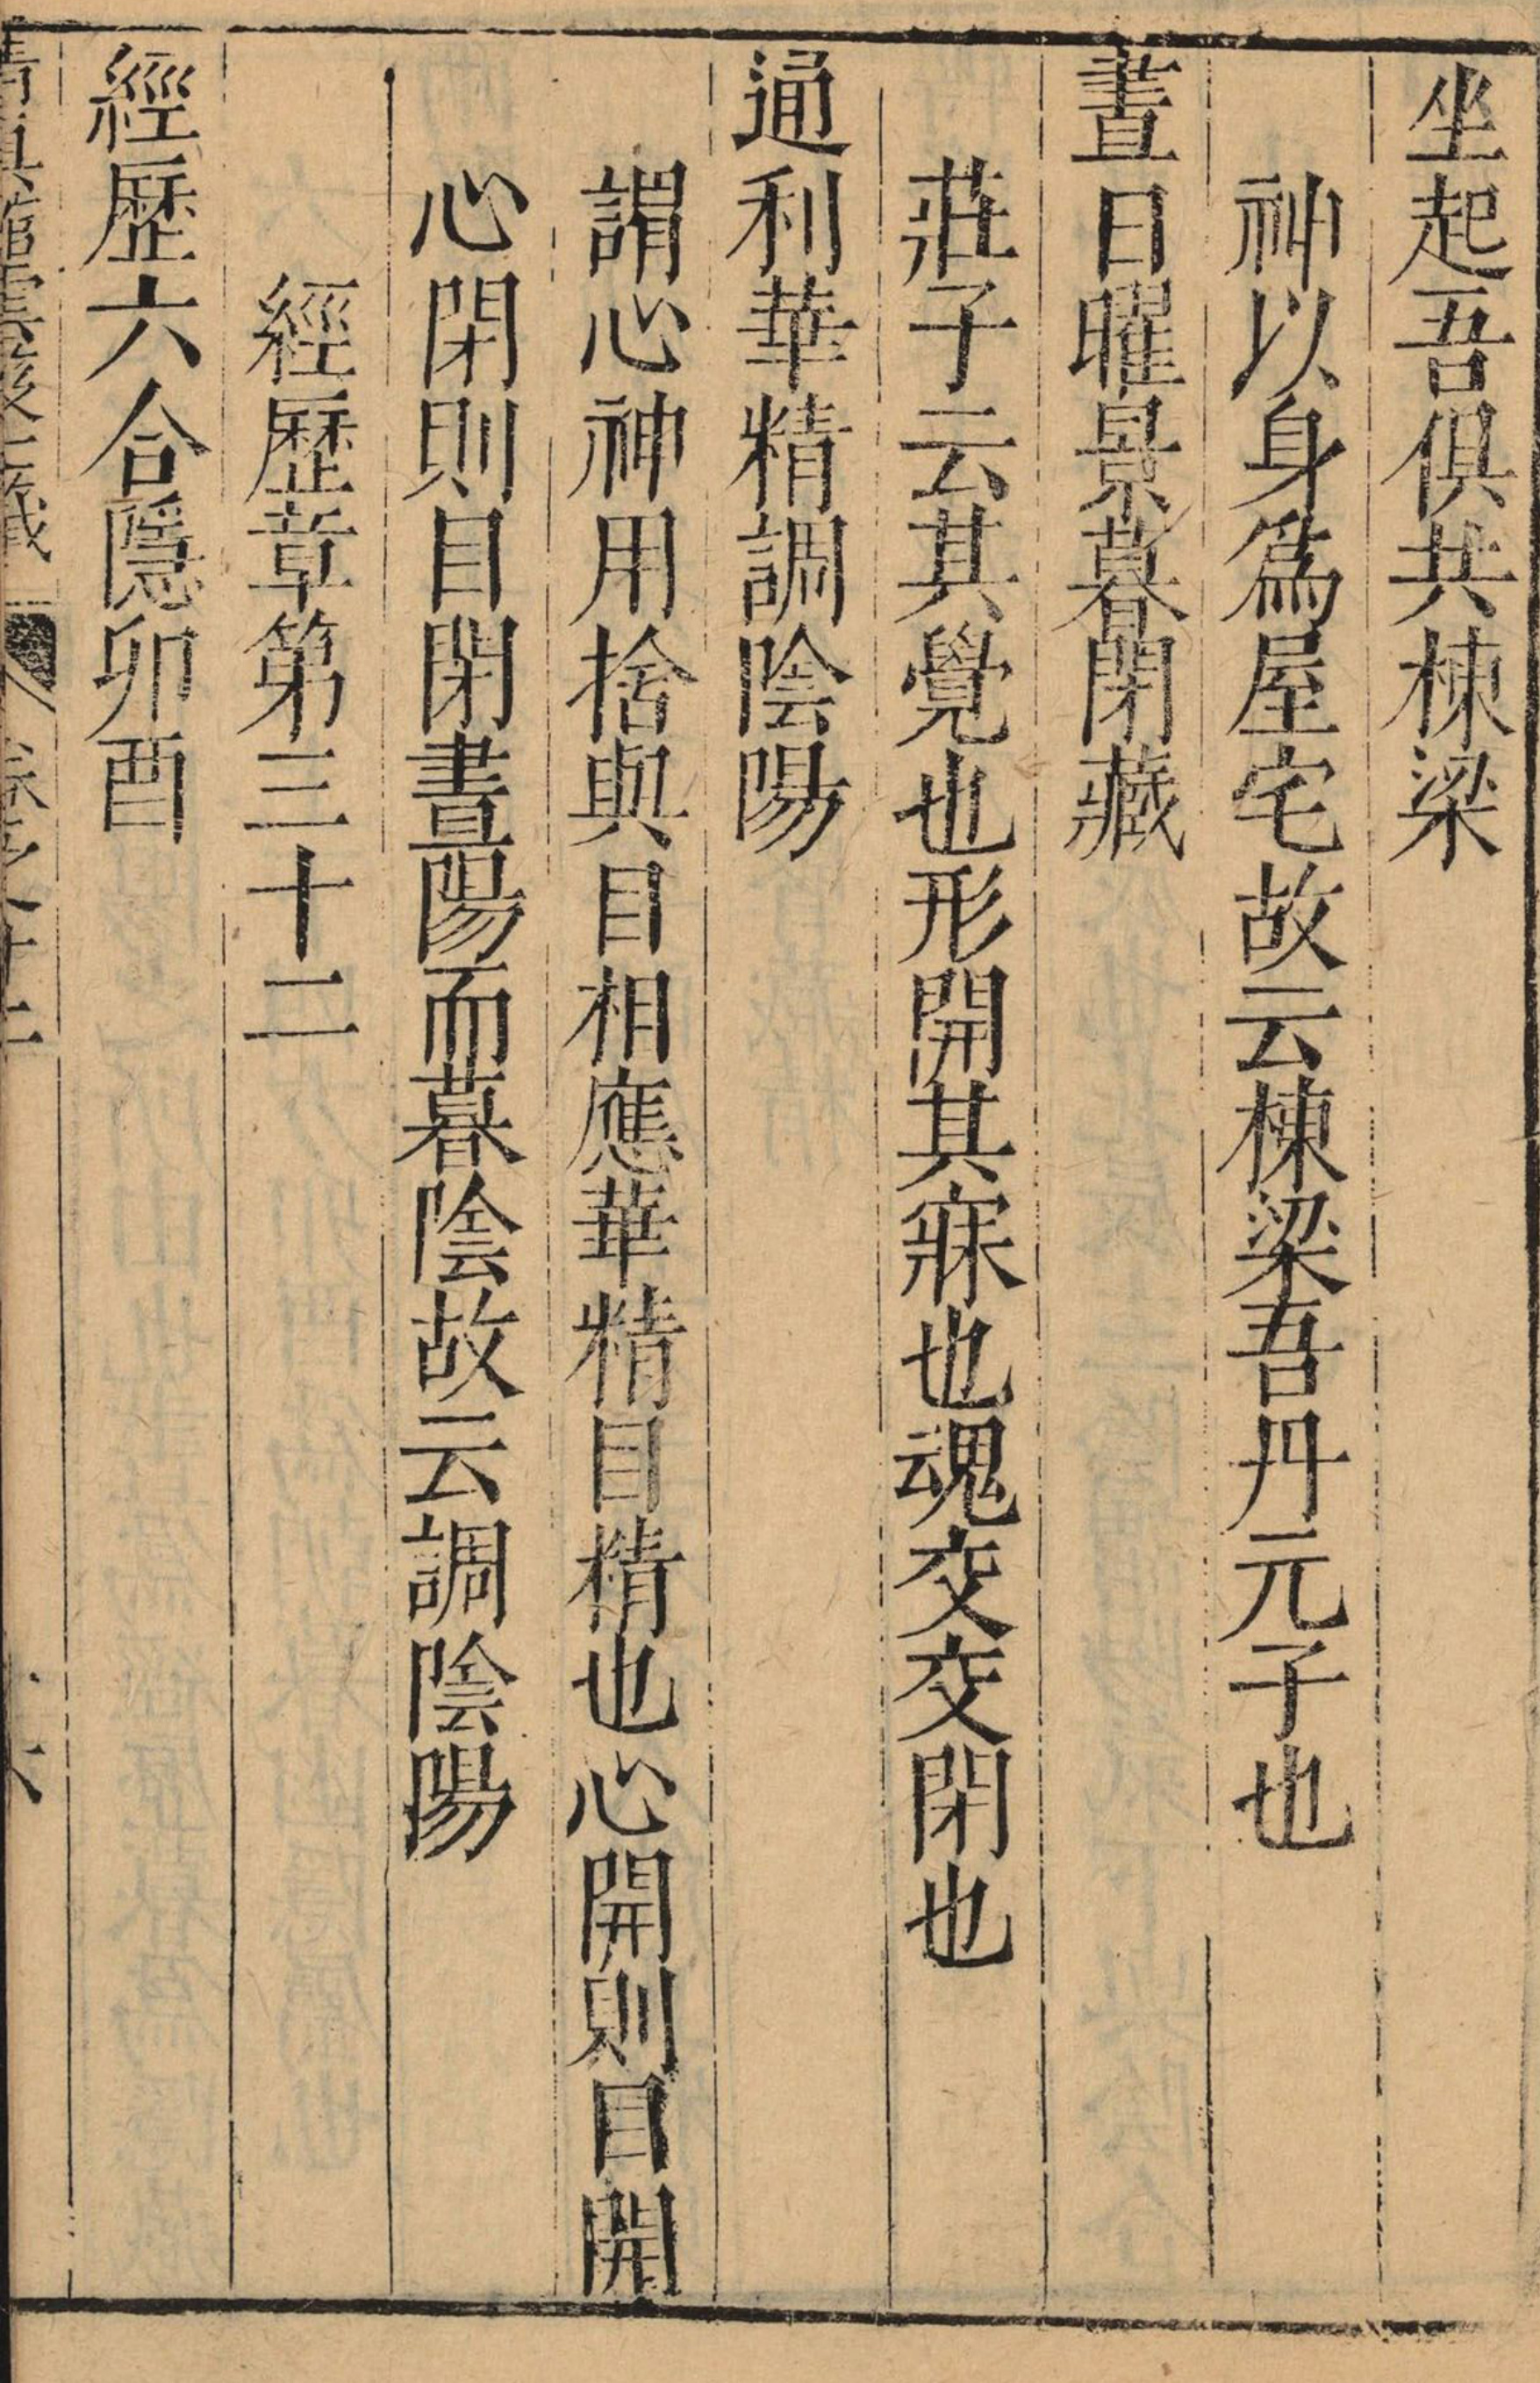 坐起吾俱共棟梁
神以身爲屋宅故云棟梁吾丹元子也
晝日曜景暮閉藏
莊子云其覺也形開其寐也魂交交閉也
通利華精調陰陽
謂心神用捨與目相應華精目精也心開則目開
心閉則目閉晝陽而暮陰故云調陰陽
經歷章第三十二
經歷六合隱卯酉